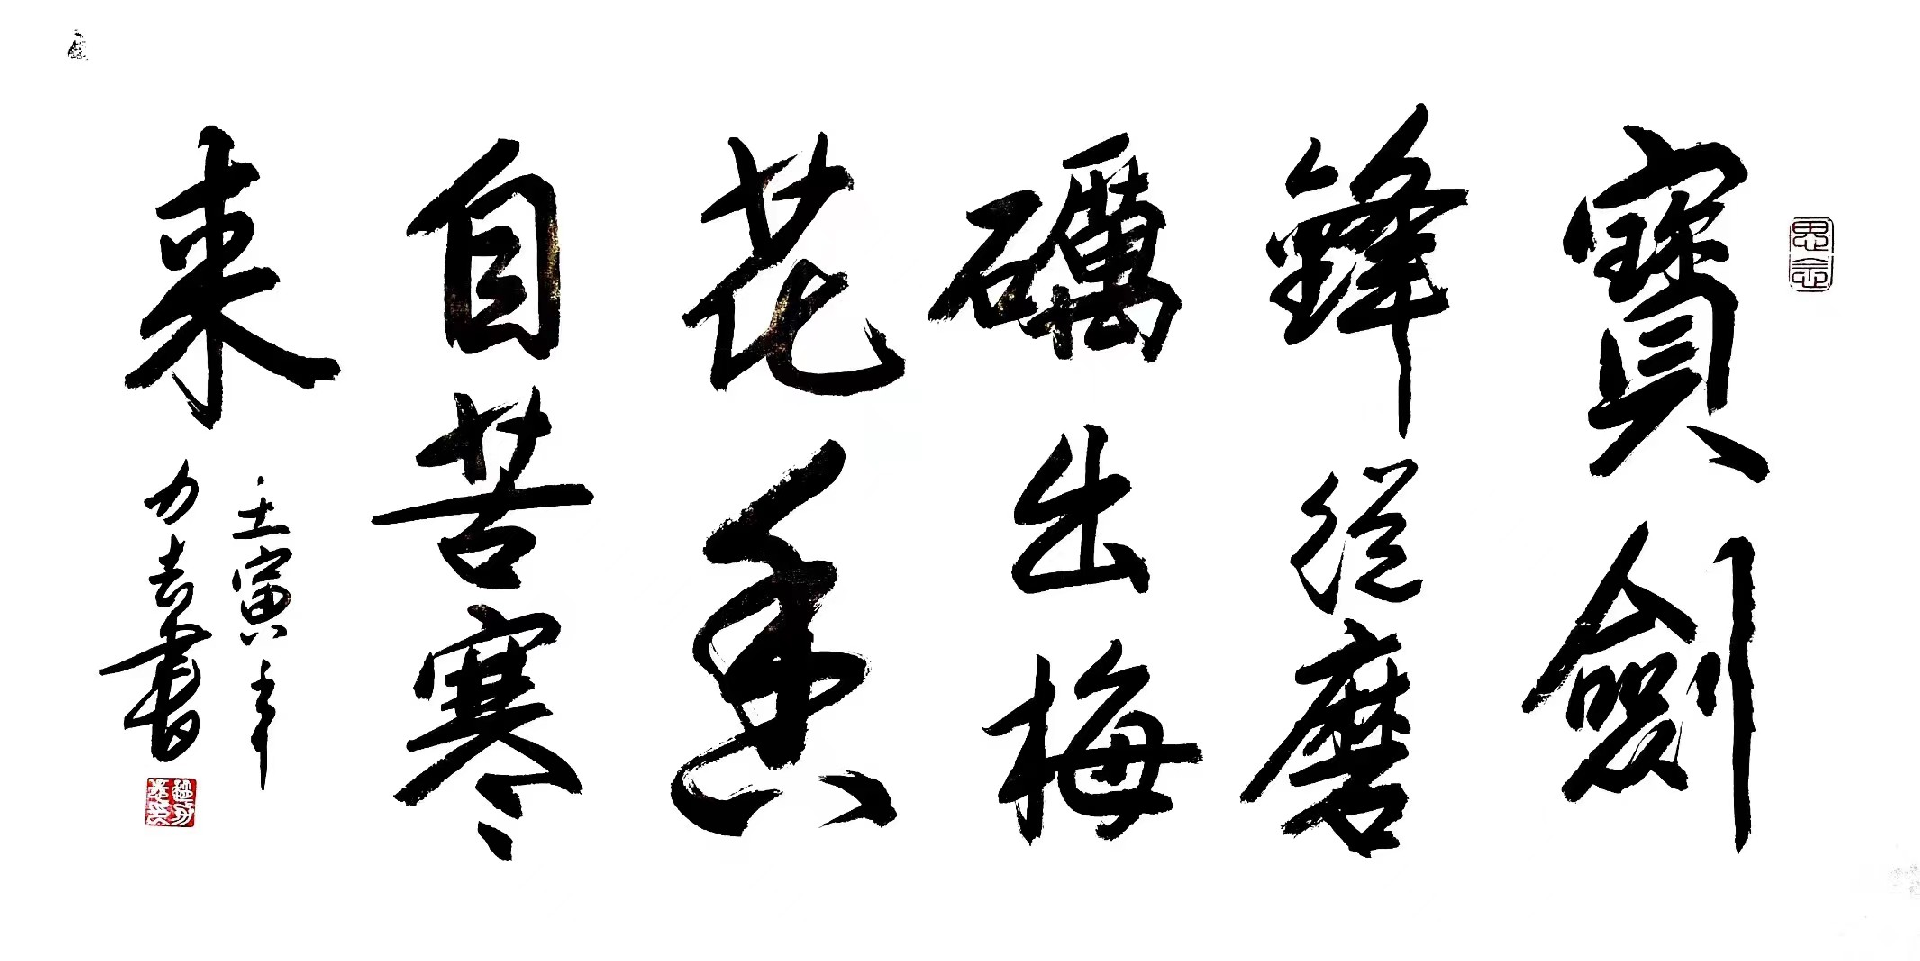 寶劍
鋒從磨
礪出梅
花香
自苦寒
來
壬寅年
力去書